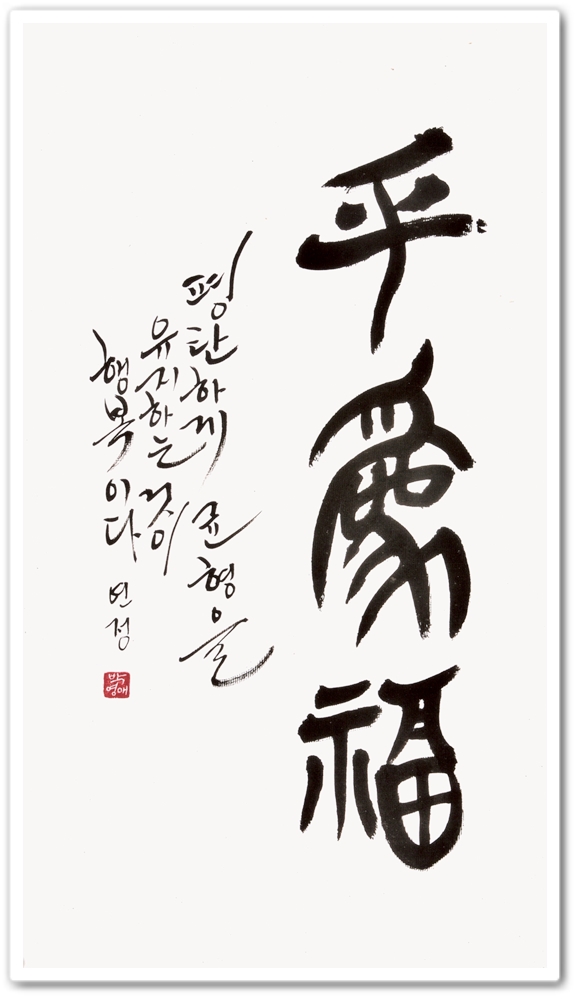 平爲福
평탄하게 균형을
유지하는 것이
행복이다
연정
박
영애